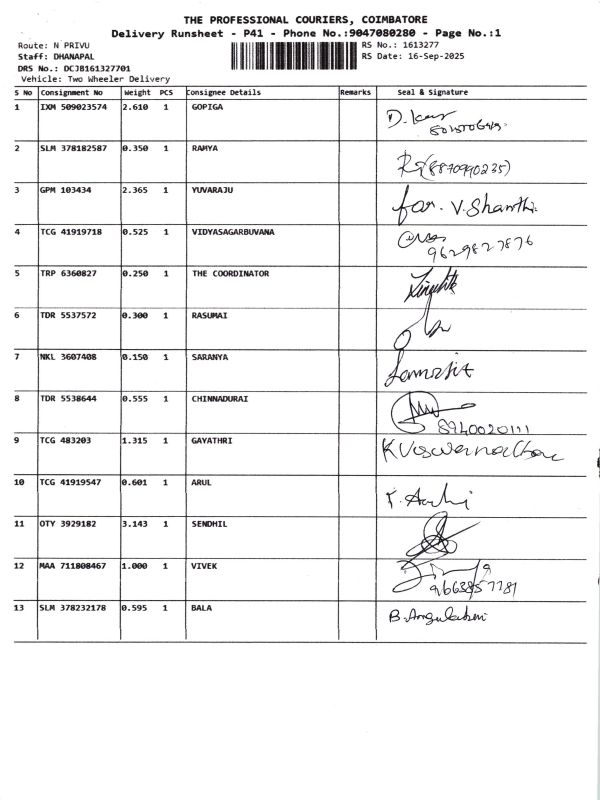 THE PROFESSIONAL COURIERS, COIMBATORE
Delivery Runsheet - P41 - Phone No.:9047080280 - Page No.:1
Route: N PRIVU
RS No.: 1613277
Staff: DHANAPAL
RS Date: 16-Sep-2025
DRS No.: DCJ8161327701
Vehicle: Two Wheeler Delivery
S No Consignment No Weight PCS Consignee Details Remarks Seal & Signature
1 IXM 509023574 2.610 1 GOPIGA
2 SLM 378182587 0.350 1 RAMYA (8870990235)
3 GPM 103434 2.365 1 YUVARAJU for. V. Shanthi
4 TCG 41919718 0.525 1 VIDYASAGARBUVANA
9629827876
5 TRP 6360827 0.250 1 THE COORDINATOR
6 TDR 5537572 0.300 1 RASUMAI
7 NKL 3607408 0.150 1 SARANYA
8 TDR 5538644 0.555 1 CHINNADURAI
8940020111
9 TCG 483203 1.315 1 GAYATHRI
10 TCG 41919547 0.601 1 ARUL
11 OTY 3929182 3.143 1 SENDHIL
12 MAA 711808467 1.000 1 VIVEK
9663857781
13 SLM 378232178 0.595 1 BALA